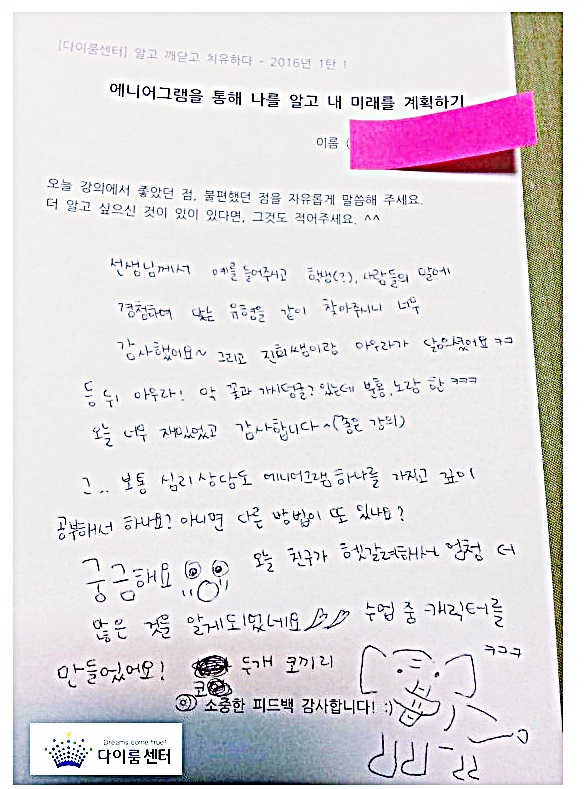 [다이룸센터] 알고 깨닫고 치유하다 - 2016년 1탄 !
에니어그램을 통해 나를 알고 내 미래를 계획하기
이름 (
오늘 강의에서 좋았던 점, 불편했던 점을 자유롭게 말씀해 주세요.
더 알고 싶으신 것이 있이 있다면, 그것도 적어주세요. ^^
선생님께서 예를 들어주시고 학생(?), 사람들의 말에
경청하며 맞는 유형을 같이 찾아주시니 너무
감사했어요~ 그리고 진희쌤이랑 아우라가 닮으셨어요 ㅋㅋ
등 뒤 아우라! 막 꽃과 가시덩굴? 있는데 분홍, 노랑 한 ㅋㅋㅋ
오늘 너무 재밌었고 감사합니다~(좋은 강의)
그.. 보통 심리상담도 에니어그램 하나를 가지고 깊이
공부해서 하나요? 아니면 다른 방법이 또 있나요?
궁금해요 오늘 친구가 헷갈려해서 엄청 더
많은 것을 알게되었네요 수업 중 캐릭터를
만들었어요! 두개 코끼리 ㅋㅋㅋ
코
소중한 피드백 감사합니다! :)
Dreams come true!
다이룸센터